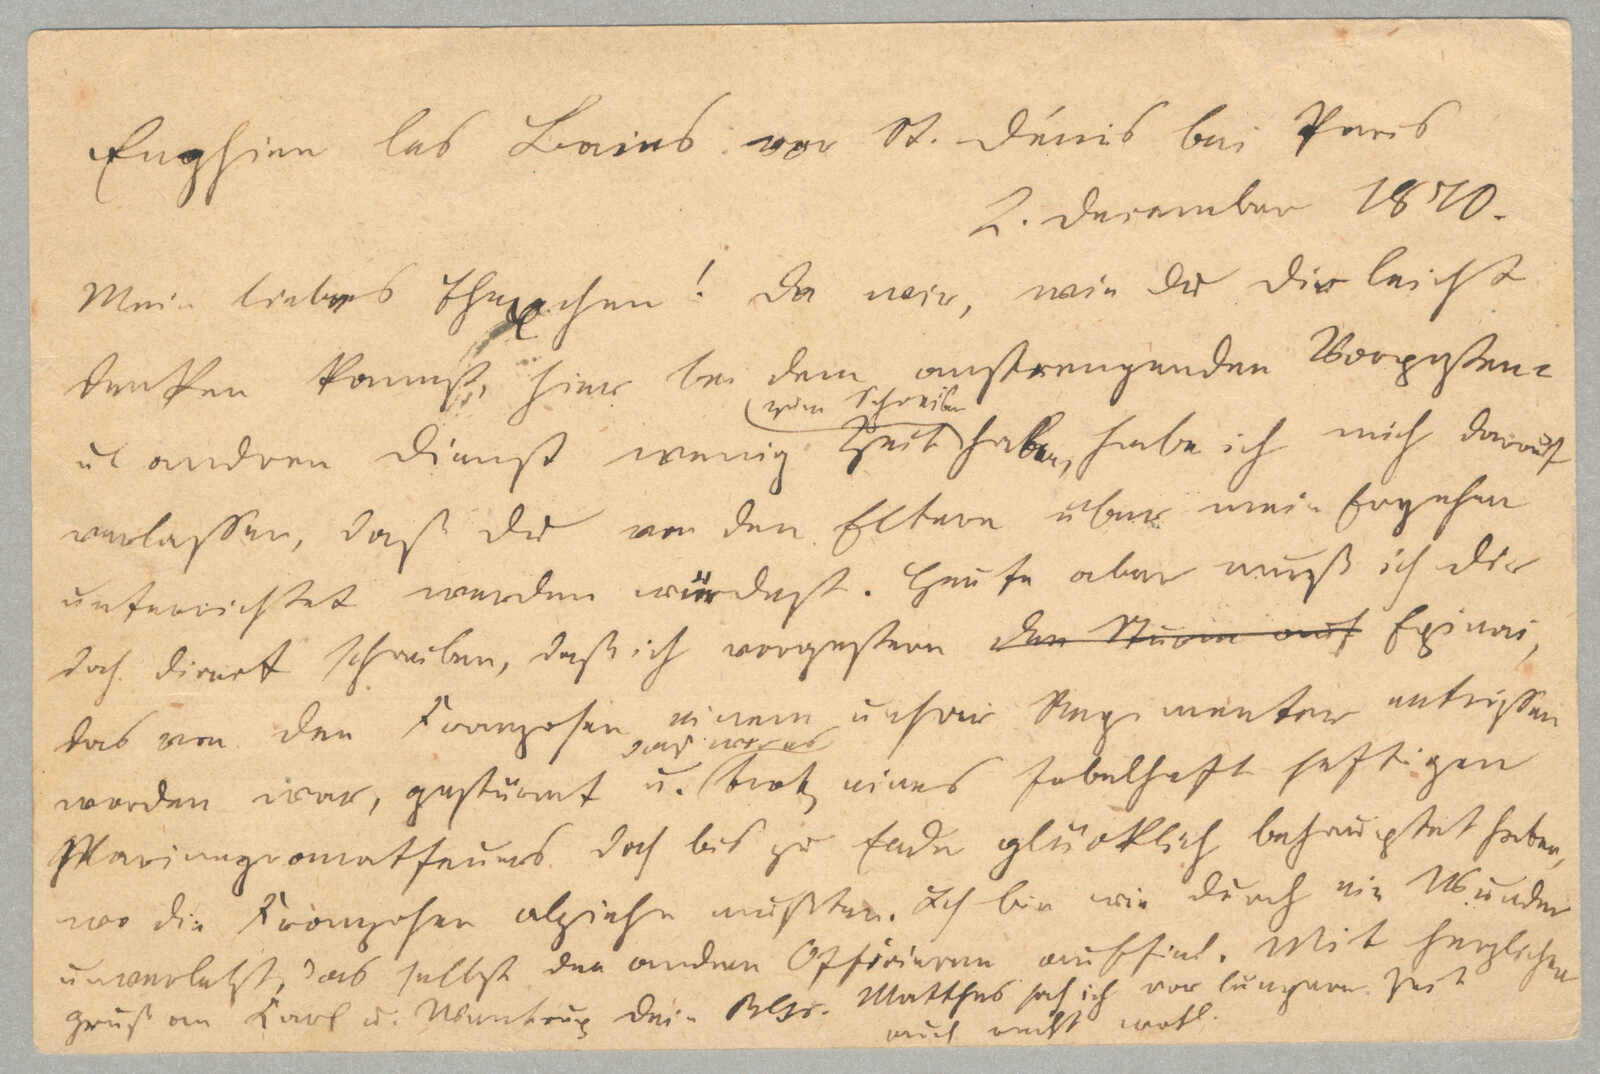 Enghien les Bains vor St. Dénis bei Paris
2. December 1870.
Mein liebes Theochen! Da wir, wie Du Dir leicht
denken kannst, hier bei dem anstrengenden Vorposten=
u andren Dienst wenig zum Schreiben Zeit haben, habe ich mich darauf
verlassen, daß Du von den Eltern über mein Ergehen
unterrichtet werden würdest. Heute aber muß ich Dir
doch direct schreiben, daß ich vorgestern den Sturm auf Epinai,
das von den Franzosen einem unsrer Regimenter entrissen
worden war, gestürmt u. trotz eines fabelhaft heftigen
Marinegranatfeuers doch bis zu Ende glücklich behauptet haben,
wo die Franzosen abziehn mußten. Ich bin wie durch ein Wunder
unverletzt, das selbst den andren Officieren auffiel. Mit herzlichen
gruß an Karl u. Dein Matthes sah ich vor lungerer Zeit
auch recht wohl.